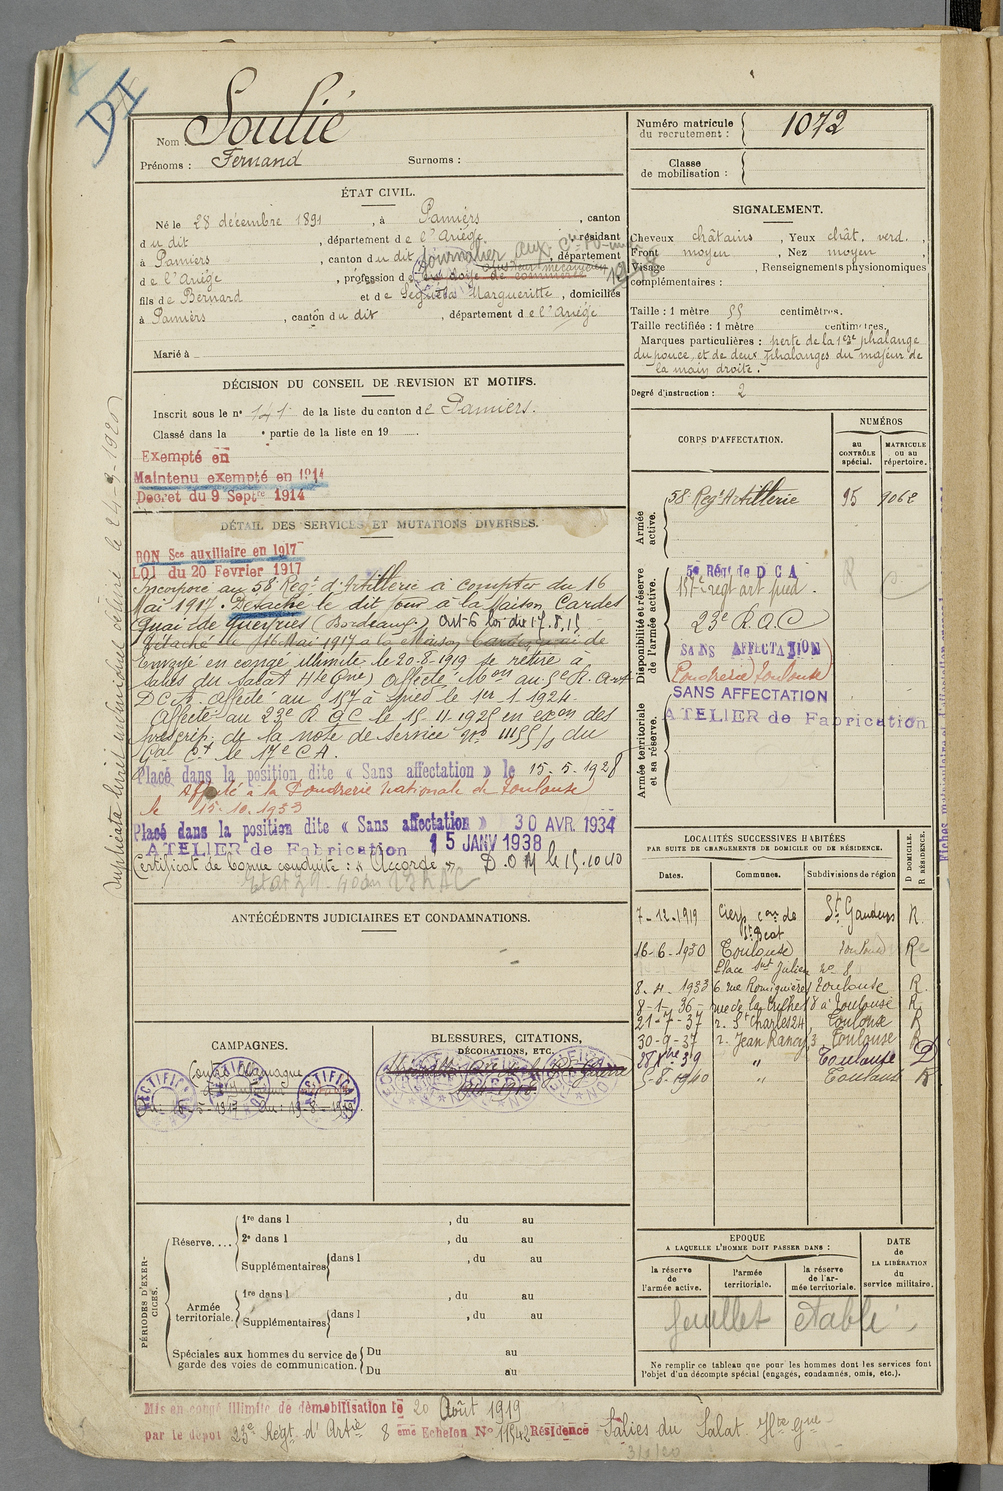 DI
Nom Soulié
Prénoms : Fernand Surnoms :
Numéro matricule du recrutement : 1072
Classe de mobilisation :
ÉTAT CIVIL.
Né le 28 décembre 1891, à Pamiers, canton
du dit, département de l'Ariège, résidant
à Pamiers, canton du dit, département
de l'Ariège, profession de
Journalier aux
employé de commerce
fils de Bernard et de Marguerite, domiciliés
à Pamiers, canton du dit, département de l'Ariège
Marié à
SIGNALEMENT.
Cheveux châtains, Yeux chât. verd.,
Front moyen, Nez moyen
Visage, Renseignements physionomiques
complémentaires :
Taille : 1 mètre 55 centimètres.
Taille rectifiée : 1 mètre centimètres.
Marques particulières : perte de la 1ere phalange
du pouce, et de deux phalanges du majeur de
la main droite.
Degré d'instruction : 2
DÉCISION DU CONSEIL DE REVISION ET MOTIFS.
Inscrit sous le n° 141 de la liste du canton de Pamiers.
Classé dans la e partie de la liste en 19
Exempté en
Maintenu exempté en 1914
Décret du 9 Septre 1914
DÉTAIL DES SERVICES ET MUTATIONS DIVERSES.
BON Sce auxiliaire en 1917
LOI du 20 Fevrier 1917
Incorporé au 58e Regt d'Artillerie à compter du 16
Mai 1917. Détaché le dit jour à la Maison Cardes
Quai de Queyries (Bordeaux) Art 6 loi du 17.8.15
Détaché le 16 Mai 1917 a la Maison Cardes, quai de
Envoyé en congé illimité le 20-8-1919 se retire à
Salies du Salat Hte Gne) Affecté Mon au 5e R. Art
D C A. Affecté au 157 à pied le 1er 1. 1924.
Affecté au 23e R A C le 15-11-1925 en exon des
prescrip. de la note de service No du
Gal Ct le 17e C A.
Placé dans la position dite « Sans affectation » le 15.5.1928
Affecté à la Poudrerie Nationale de Toulouse
le 15.10.1933
Placé dans la position dite « Sans affectation » 30 AVR. 1934
ATELIER de Fabrication 15 JANV 1938
Certificat de bonne conduite : « Accordé » D.O.M le 15.10.40
duplicata livret individuel délivré le 24-9-1920
CORPS D'AFFECTATION.
NUMÉROS
au CONTRÔLE spécial.
MATRICULE ou au répertoire.
Armée active.
58 Regt Artillerie 95 9062
Disponibilité et réserve de l'armée active.
5e Régt de D C A
157e regt art pied.
23e R A C
SANS AFFECTATION
Poudrerie Toulouse
SANS AFFECTATION
ATELIER de Fabrication
Armée territoriale et sa réserve.
LOCALITÉS SUCCESSIVES HABITÉES
PAR SUITE DE CHANGEMENTS DE DOMICILE OU DE RÉSIDENCE.
Dates. Communes. Subdivisions de région D DOMICILE. R RÉSIDENCE.
7-12-1919 Cierp con de St Béat St Gaudens R.
16-6-1930 Toulouse Toulouse Re
Place St Julien no 8
8-4-1933 6 rue Romiguières Toulouse R.
8-1-36 rue de la trilhe 8 à Toulouse R.
21-7-37 r. St Charles 24, Toulouse R
30-9-37 r. Jean Rancy, 3 Toulouse R
39 " Toulouse D
5-8-1940 " Toulouse R
ANTÉCÉDENTS JUDICIAIRES ET CONDAMNATIONS.
CAMPAGNES.
Contre l'Allemagne
RECTIFICATION
BLESSURES, CITATIONS,
DÉCORATIONS, ETC.
RECTIFICATION
PÉRIODES D'EXERCICES.
Réserve....
1re dans l , du au
2e dans l , du au
Supplémentaires dans l , du au
Armée territoriale.
1re dans l , du au
Supplémentaires dans l , du au
Spéciales aux hommes du service de garde des voies de communication.
Du au
Du au
EPOQUE
A LAQUELLE L'HOMME DOIT PASSER DANS :
la réserve de l'armée active.
l'armée territoriale.
la réserve de l'armée territoriale.
DATE de LA LIBÉRATION du service militaire.
feuillet établi
Ne remplir ce tableau que pour les hommes dont les services font
l'objet d'un décompte spécial (engagés, condamnés, omis, etc.).
Mis en congé illimité de démobilisation le 20 Août 1919
par le dépot 23e Régt d'Artie 8 eme Echelon No 11542 Résidence Salies du Salat Hte Gne
3/1/20